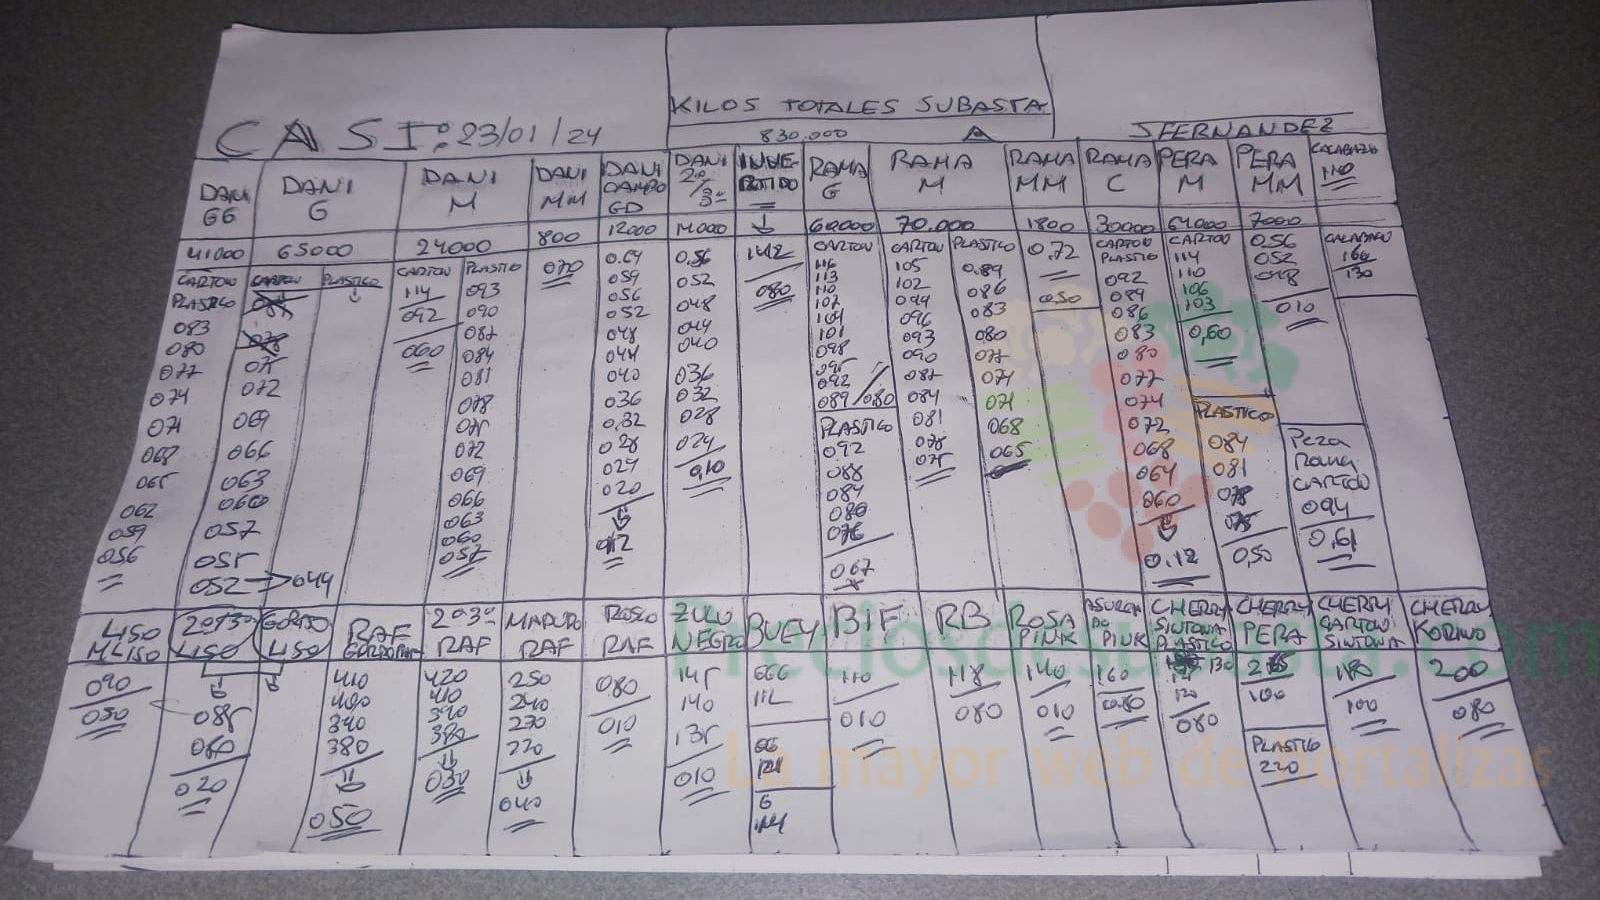 KILOS TOTALES SUBASTA
CASI: 23/01/24
830.000
A
JFERNANDEZ
DANI GG
DANI G
DANI M
DANI MM
DANI CAMPO GD
DANI 2º/3º
INVIERTIDO
RAMA G
RAMA M
RAMA MM
RAMA C
PERA M
PERA MM
CALABAZA 110
41000
65000
24000
800
12000
14000
60000
70.000
1800
30000
64000
7000
CARTON
PLASTICO
083
080
077
074
071
068
065
062
059
056
CARTON
075
072
069
066
063
060
057
055
052 → 044
PLASTICO
CARTON
114
092
060
PLASTICO
093
090
087
084
081
078
075
072
069
066
063
060
057
070
0.64
059
056
052
048
044
040
036
0.32
028
024
020
012
0,56
052
048
044
040
036
032
028
024
0,10
142
080
CARTON
116
113
110
107
104
101
098
095
092
089 / 080
PLASTICO
092
088
084
080
076
067
CARTON
105
102
099
096
093
090
087
084
081
078
075
PLASTICO
0.89
086
083
080
077
074
071
068
065
0.72
050
CARTON
PLASTICO
092
089
086
083
080
077
074
072
068
064
060
0.12
CARTON
114
110
106
103
0,60
PLASTICO
084
081
078
075
0,50
0,56
052
048
010
Pera
Rama
CARTON
094
0,61
CALABACIN
160
130
LISO
M LISO
2º/3º
LISO
GORDO
LISO
RAF
GORDO
2º3º
RAF
MADURO
RAF
ROSCO
RAF
ZULU
NEGRO
BUEY
BIF
RB
ROSA
PINK
ASURCADO
PINK
CHERRY
SINTONIA
PLASTICO
CHERRY
PERA
CHERRY
CARTON
SINTONIA
CHERRY
KORINO
090
050
085
080
020
410
400
390
380
050
420
410
390
380
030
250
240
230
220
040
080
010
145
140
135
010
GGG
112
GG
121
G
114
110
010
118
080
140
010
160
080
130
120
080
100
PLASTICO
220
180
100
200
080
Preciosdesubasta.com
La mayor web de hortalizas